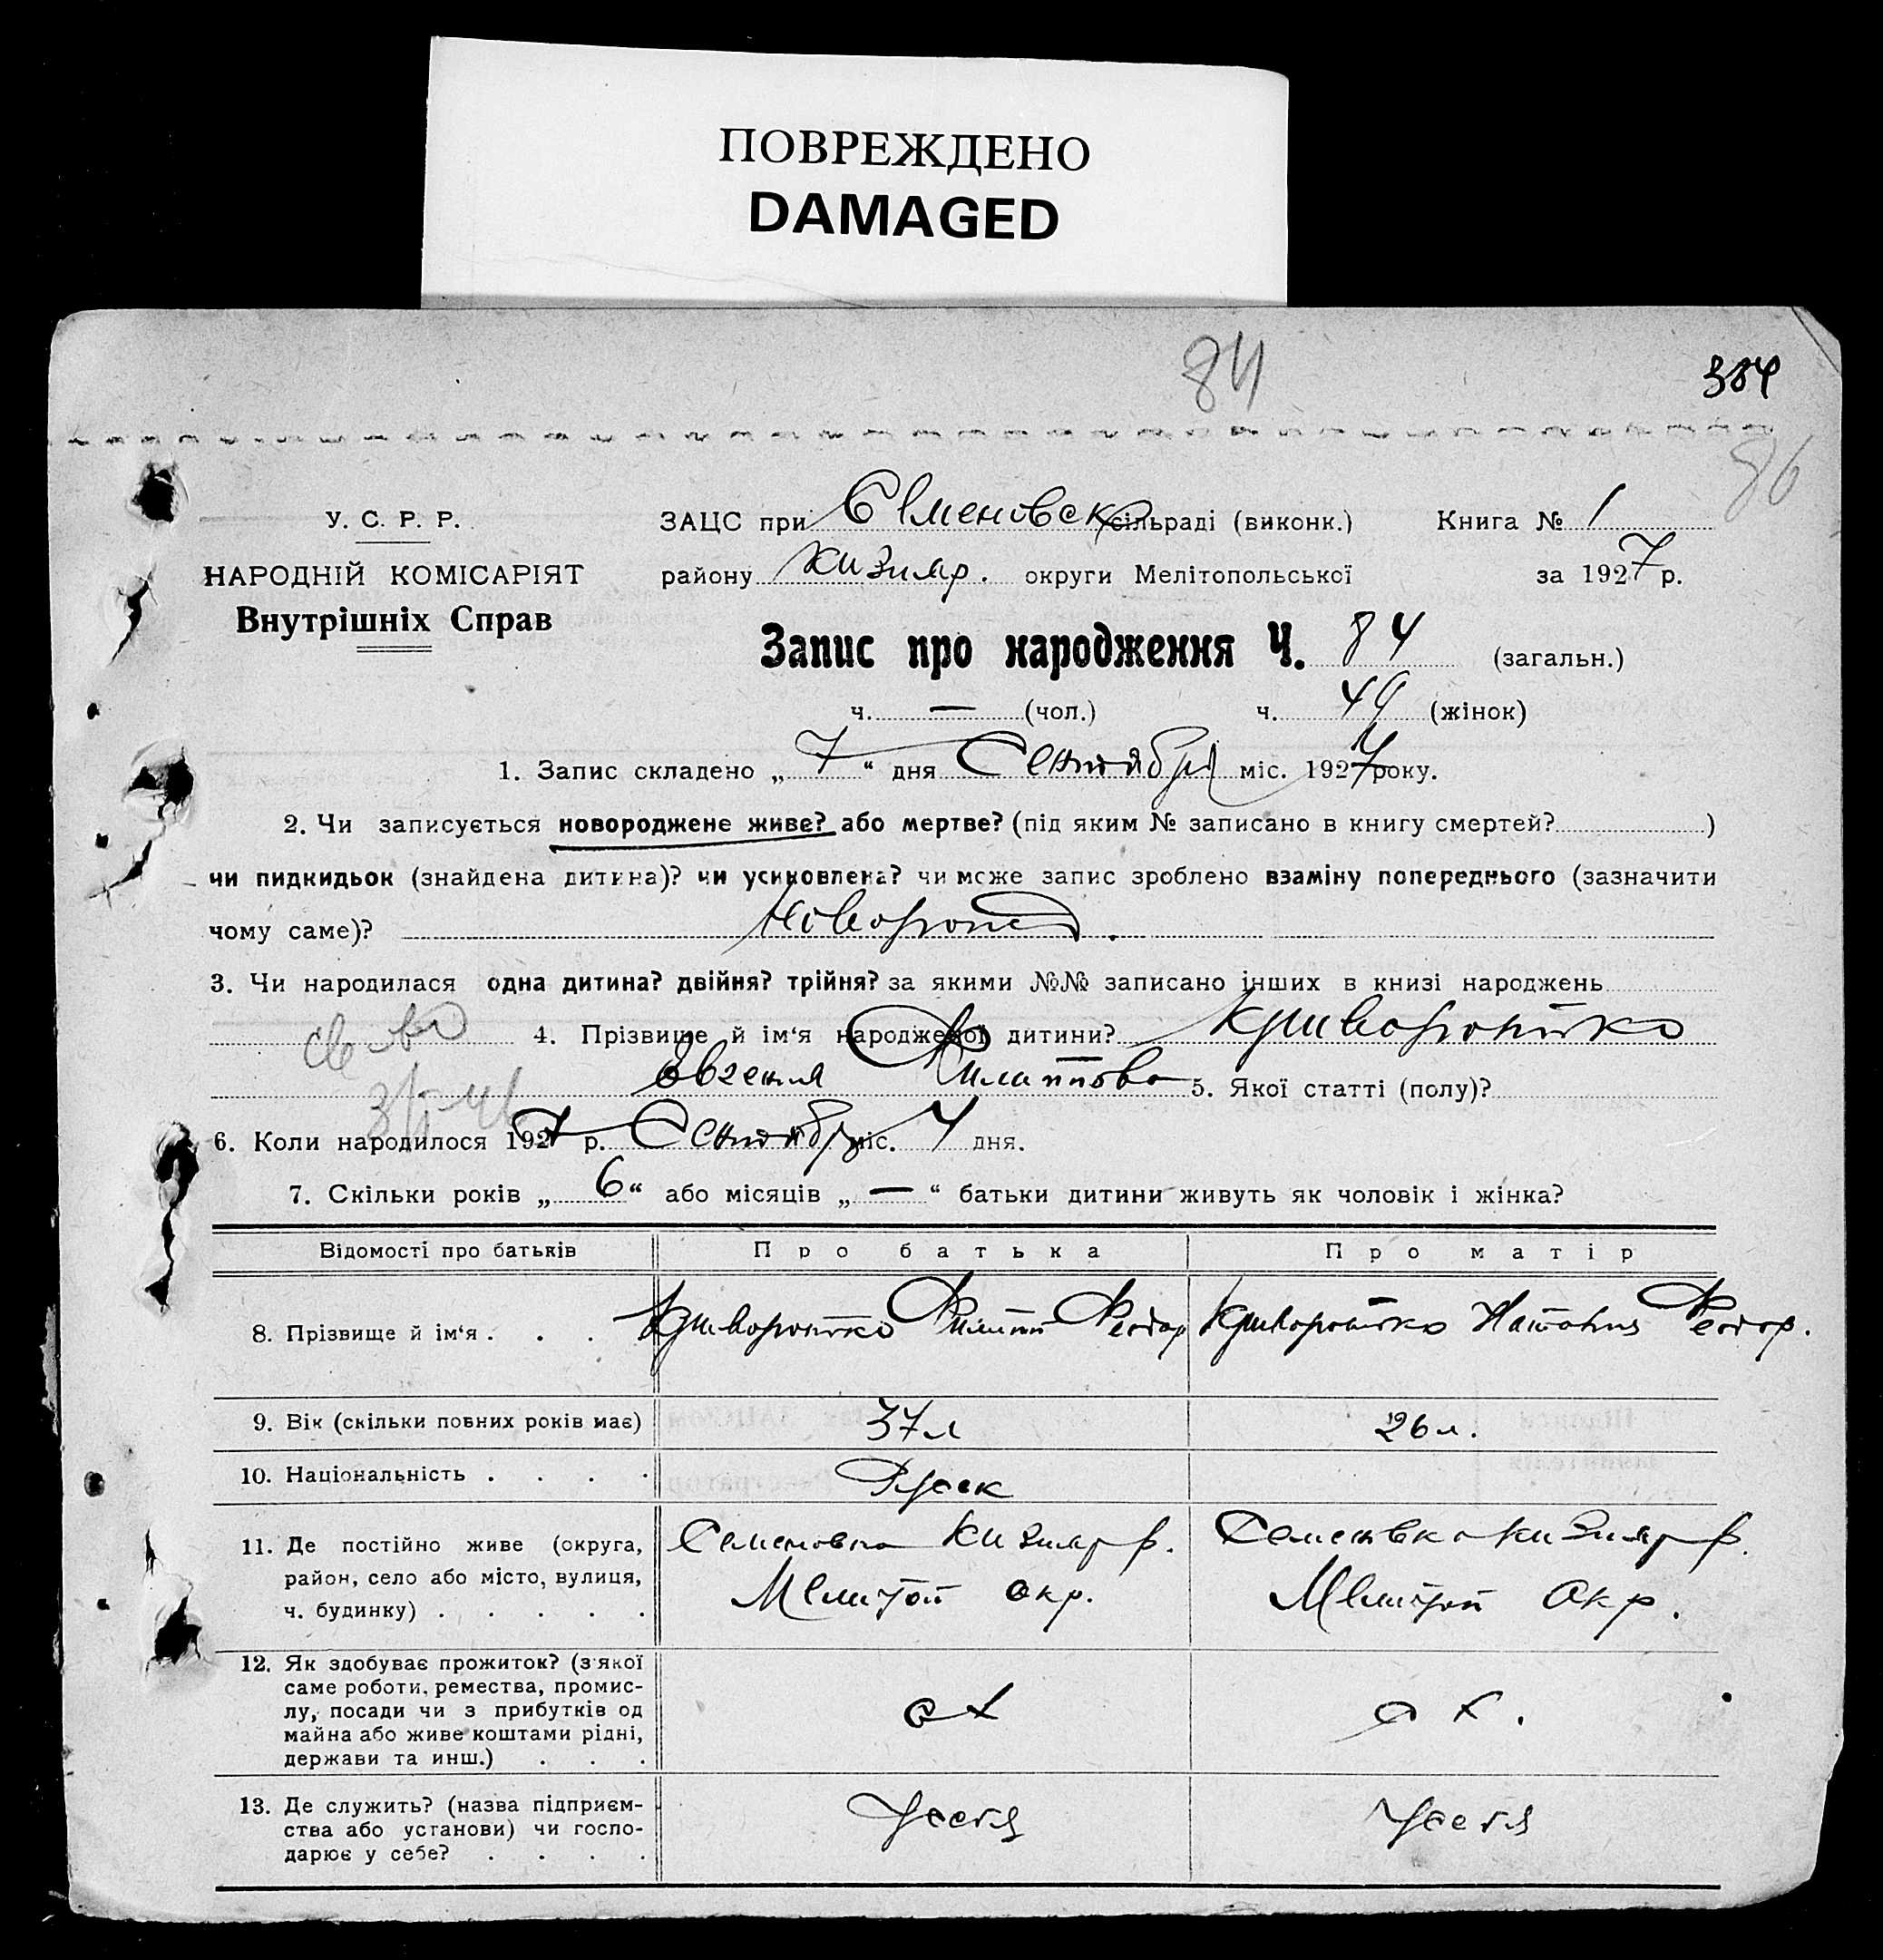 ПОВРЕЖДЕНО
DAMAGED
84
384
86
У. С. Р. Р.
НАРОДНІЙ КОМІСАРІЯТ
Внутрішніх Справ
ЗАЦС при Семеновск сільраді (виконк.) Книга № 1
району Кизияр. округи Мелітопольської за 1927 р.
Запис про народження Ч. 84 (загальн.)
ч. — (чол.) ч. 49 (жінок)
1. Запис складено „ 7 “ дня Сентября міс. 1927 року.
2. Чи записується новороджене живе? або мертве? (під яким № записано в книгу смертей? )
чи пидкидьок (знайдена дитина)? чи усиновлена? чи може запис зроблено взаміну попереднього (зазначити
чому саме)? Новорожд.
3. Чи народилася одна дитина? двійня? трійня? за якими №№ записано інших в книзі народжень
4. Прізвище й ім‘я народженої дитини? Криворотько
Евгения Филиппова 5. Якої статті (полу)?
6. Коли народилося 1927 р. Сентября міс. 4 дня.
7. Скільки років „ 6 “ або місяців „ — “ батьки дитини живуть як чоловік і жінка?
Відомості про батьків Про батька Про матір
8. Прізвище й ім‘я . . . Криворотько Филипп Феодор Криворотько Наталия Феодор.
9. Вік (скільки повних років має) 37 л 26 л.
10. Національність . . . . Русск
11. Де постійно живе (округа, район, село або місто, вулиця, ч. будинку) . . . . .
Семеновка Кизияр р.
Мелитоп окр.
Семеновка Кизияр р.
Мелитоп Окр.
12. Як здобуває прожиток? (з‘якої
саме роботи, ремества, промис-
лу, посади чи з прибутків од
майна або живе коштами рідні,
держави та инш.) . . .
с х
с х.
13. Де служить? (назва підприєм-
ства або установи) чи госпо-
дарює у себе? . . . .
у себя
у себя